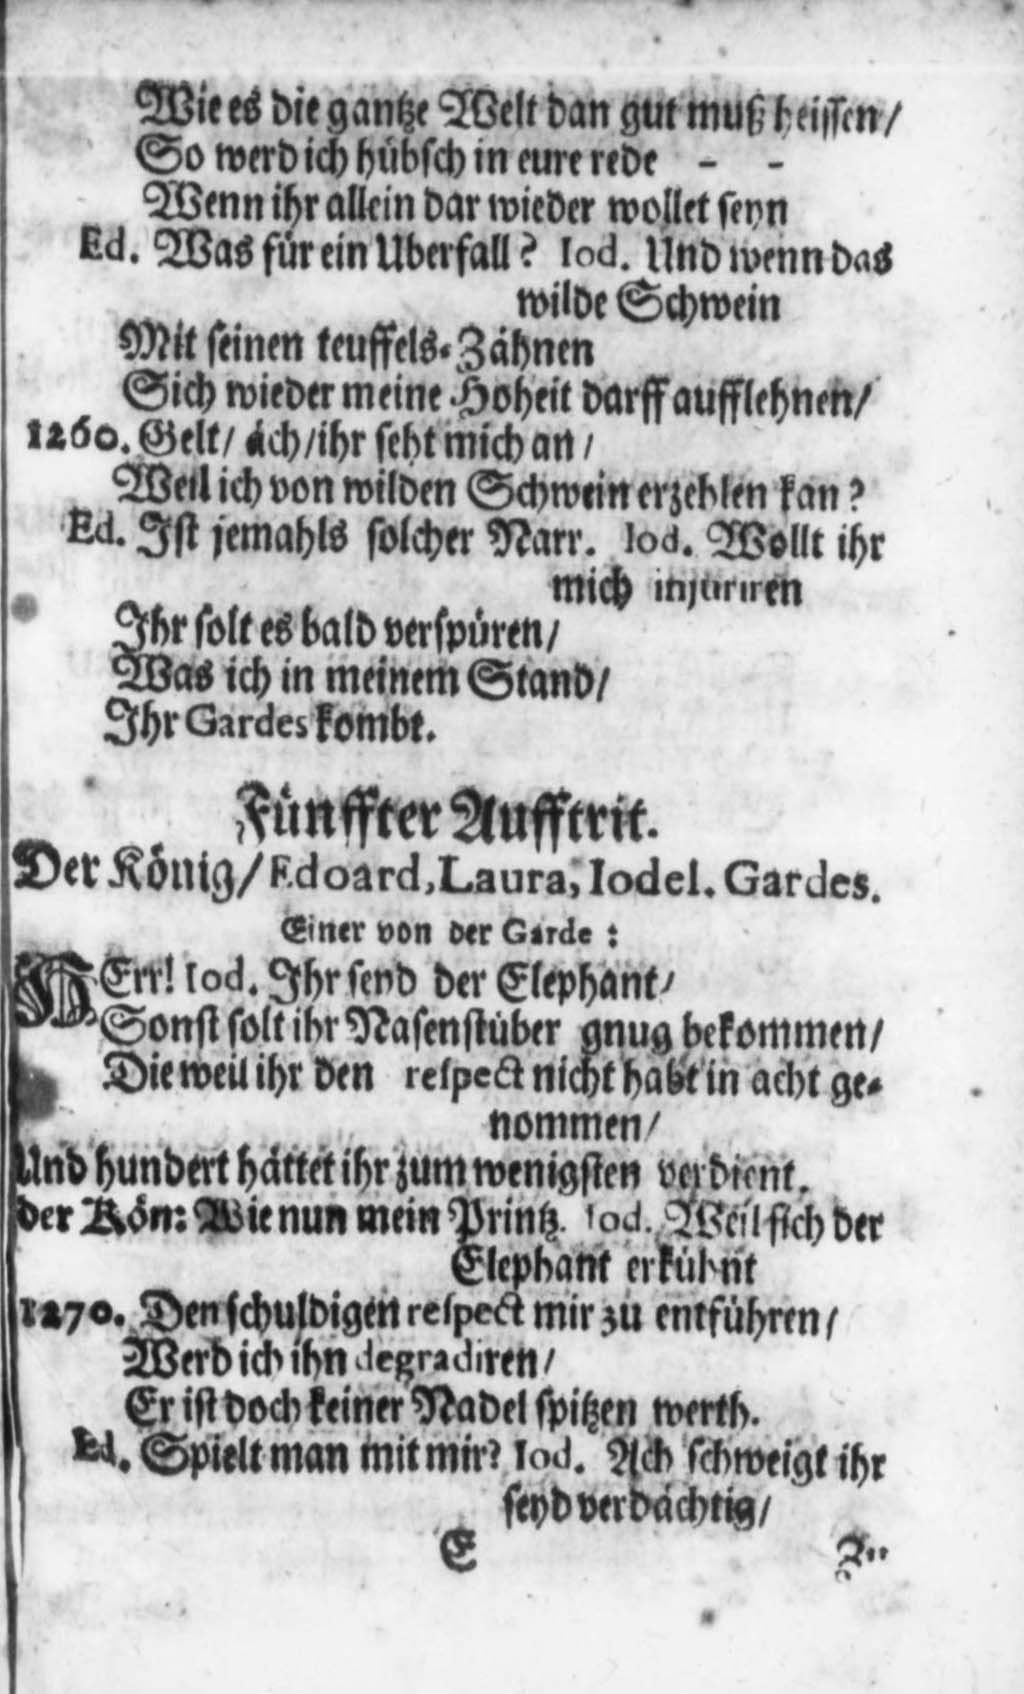 Wie es die gantze Welt dan gut muß heissen/
So werd ich hübsch in eure rede - -
Wenn ihr allein dar wieder wollet seyn
Ed. Was für ein Uberfall? Iod. Und wenn das
wilde Schwein
Mit seinen teuffels-Zähnen
Sich wieder meine Hoheit darff aufflehnen/
1260. Gelt/ äch/ihr seht mich an/
Weil ich von wilden Schwein erzehlen kan?
Ed. Ist jemahls solcher Narr. Iod. Wollt ihr
mich injuriren
Ihr solt es bald verspüren/
Was ich in meinem Stand/
Ihr Gardes kombt.
Fünffter Aufftrit.
Der König/Edoard, Laura, Iodel. Gardes.
Einer von der Garde:
HErr! Iod. Ihr seyd der Elephant/
Sonst solt ihr Nasenstüber gnug bekommen/
Die weil ihr den respect nicht habt in acht ge-
nommen/
Und hundert hättet ihr zum wenigsten verdient.
der Kön: Wie nun mein Printz. Iod. Weil sich der
Elephant erkühnt
1270. Den schuldigen respect mir zu entführen/
Werd ich ihn degradiren/
Er ist doch keiner Nadel spitzen werth.
Ed. Spielt man mit mir? Iod. Ach schweigt ihr
seyd verdächtig/
E